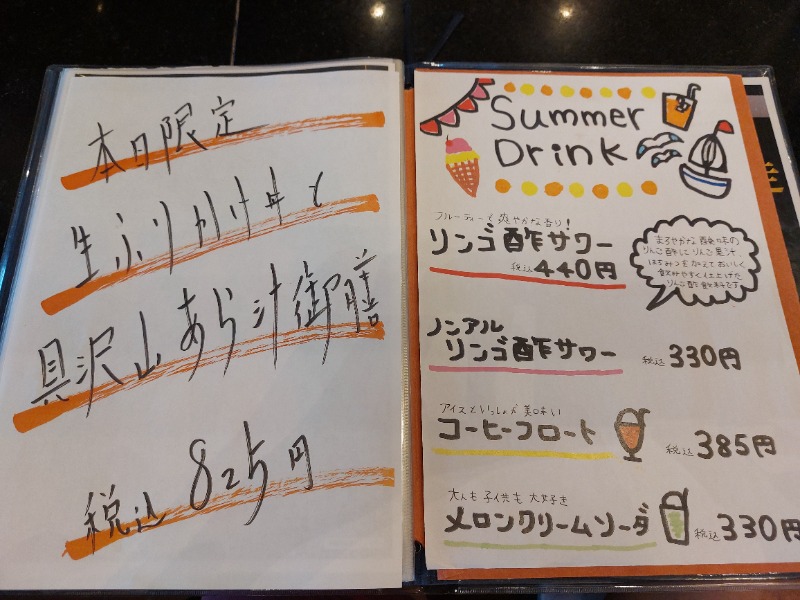 本日限定
生ふりかけ丼と
具沢山あら汁御膳
税込825円
Summer
Drink
フルーティーで爽やかな香り!
リンゴ酢サワー
税込440円
まろやかな酸味の
りんご酢にりんご果汁
はちみつを加えておいしく
飲みやすく仕上げた
りんご酢飲料です
ノンアル
リンゴ酢サワー 税込330円
アイスといっしょが美味い
コーヒーフロート 税込385円
大人も子供も大好き
メロンクリームソーダ 税込330円